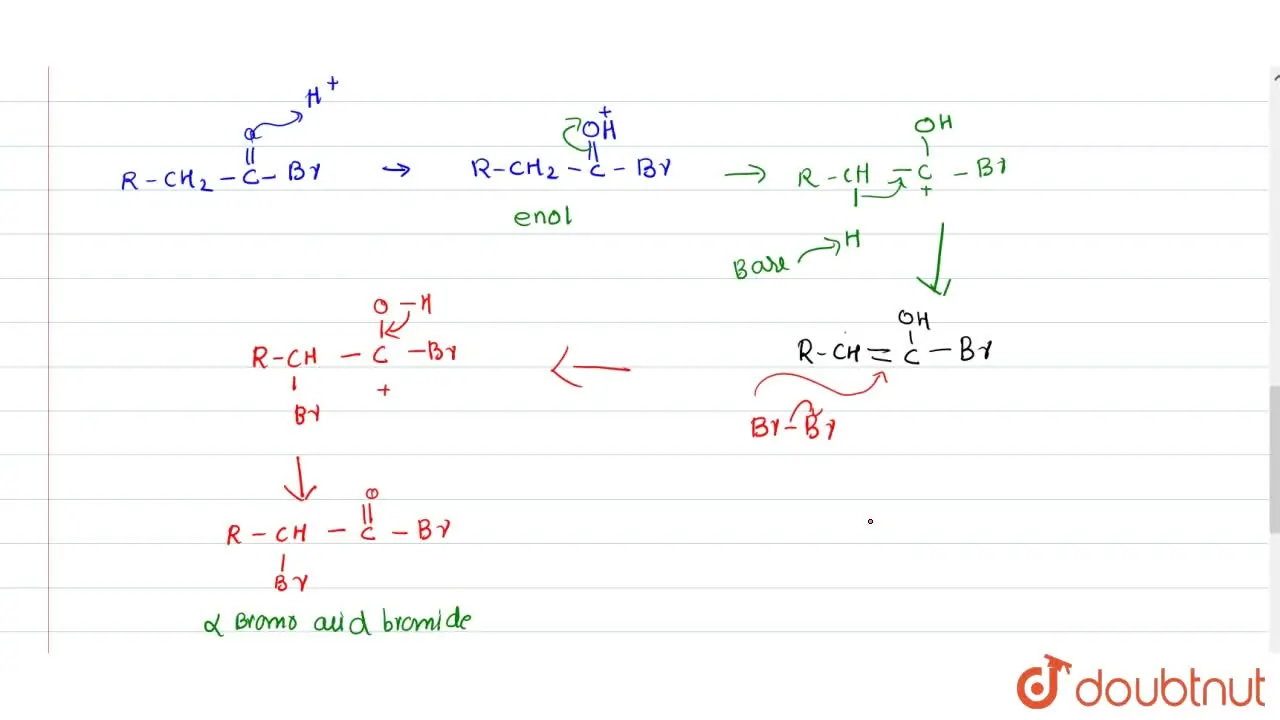 H+
O
||
R-CH2-C-Br → R-CH2-C-Br → R-CH-C-Br
+
OH
||
enol
OH
|
+
|
Base H
OH
|
R-CH=C-Br
Br-Br
O-H
|
R-CH-C-Br
|
+
Br
O
||
R-CH-C-Br
|
Br
α Bromo acid bromide
doubtnut